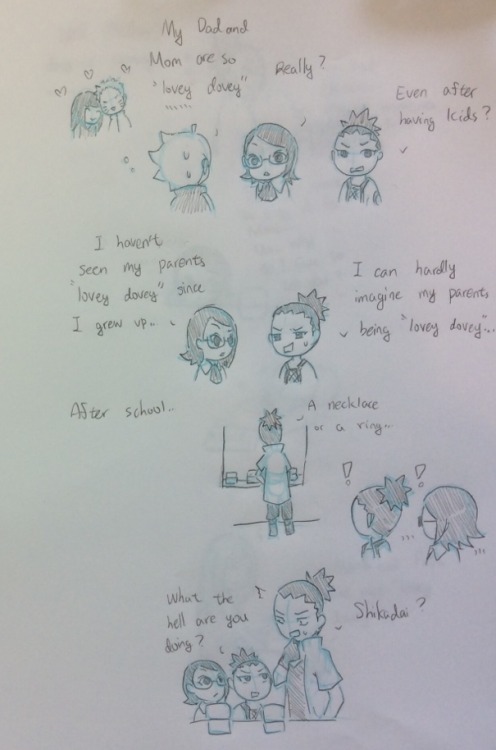 My Dad and
Mom are so
"lovey dovey"
......
Really?
Even after
having kids?
I haven't
seen my parents
"lovey dovey" since
I grew up..
I can hardly
imagine my parents
being "lovey dovey"...
After school..
A necklace
or a ring...
!
?
...
...
What the
hell are you
doing?
Shikadai?